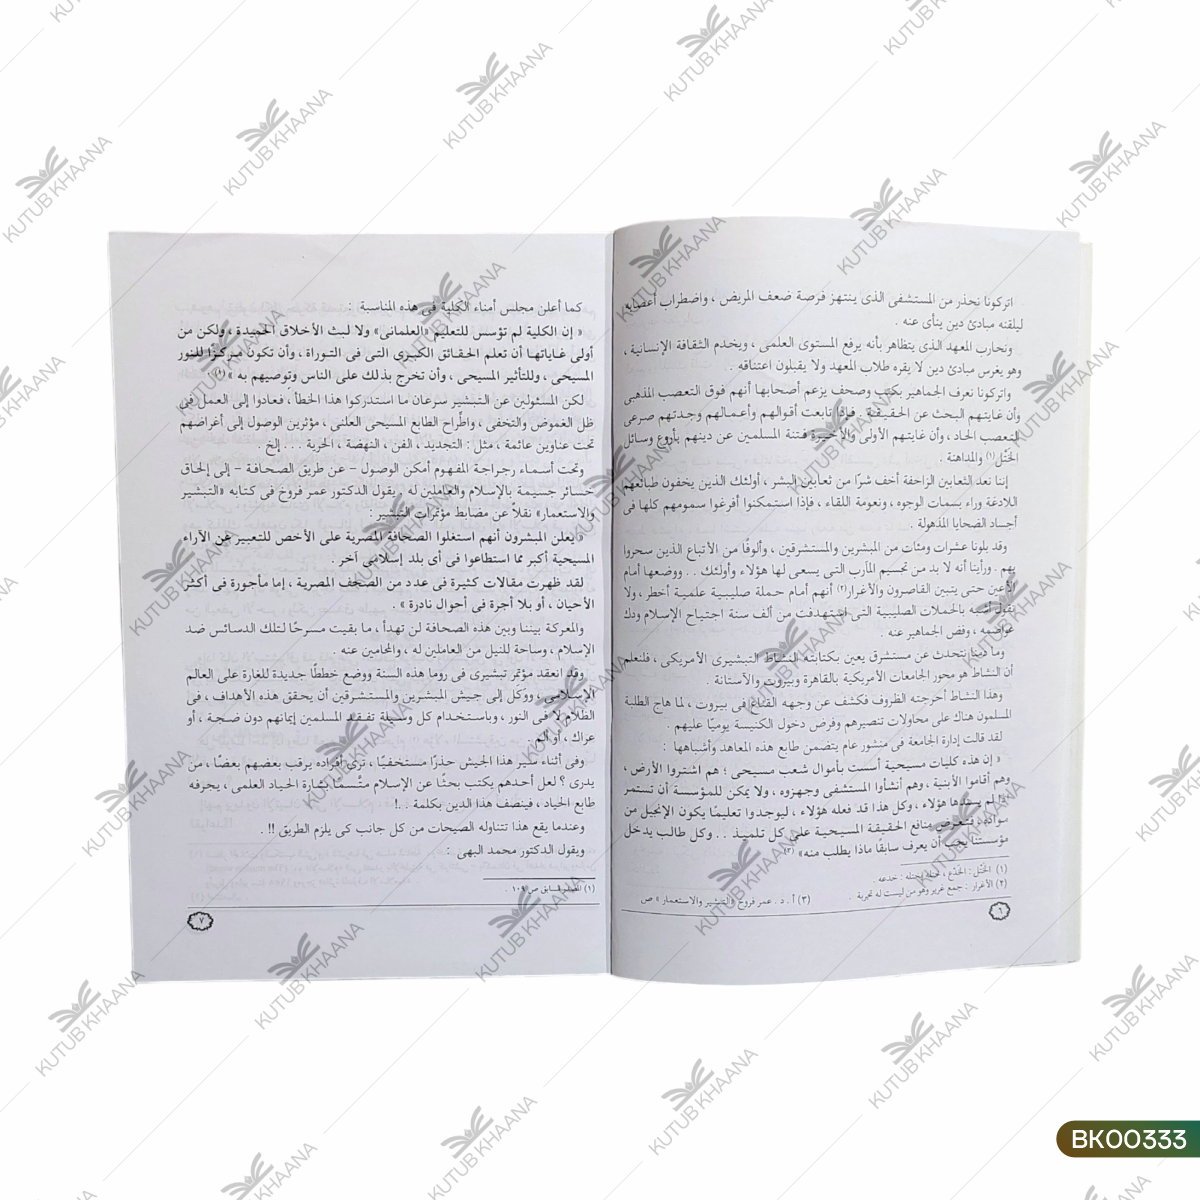 اتركونا نحذر من المستشفى الذى ينتهز فرصة ضعف المريض ، واضطراب أعصابه
ليلقنه مبادئ دين ينأى عنه .
ونحارب المعهد الذى يتظاهر بأنه يرفع المستوى العلمى ، ويخدم الثقافة الإنسانية ،
وهو يغرس مبادئ دين لا يقره طلاب المعهد ولا يقبلون اعتناقه .
واتركونا نعرف الجماهير بكتب وصحف يزعم أصحابها أنهم فوق التعصب المذهبى
وأن غايتهم البحث عن الحقيقة . فإذا تابعت أقوالهم وأعمالهم وجدتهم صرعى
التعصب الحاد ، وأن غايتهم الأولى والأخيرة فتنة المسلمين عن دينهم بأروع وسائل
الخَتْل(١) والمداهنة .
إننا نعد الثعابين الزاحفة أخف شرًا من ثعابين البشر ، أولئك الذين يخفون طبائعهم
اللادغة وراء بسمات الوجوه ، ونعومة اللقاء ، فإذا استمكنوا أفرغوا سمومهم كلها فى
أجساد الضحايا المذهولة .
وقد بلونا عشرات ومئات من المبشرين والمستشرقين ، وألوفًا من الأتباع الذين سحروا
بهم . ورأينا أنه لا بد من تجسيم المآرب التى يسعى لها هؤلاء وأولئك . . ووضعها أمام
الأعين حتى يتبين القاصرون والأغرار(٢) أنهم أمام حملة صليبية علمية أخطر ، ولا
نقول أشبه بالحملات الصليبية التى استهدفت من ألف سنة اجتياح الإسلام ودك
عواصمه ، وفض الجماهير عنه .
وما دمنا نتحدث عن مستشرق يعين بكتابته النشاط التبشيرى الأمريكى ، فلنعلم
أن النشاط هو محور الجامعات الأمريكية بالقاهرة وبيروت والآستانة .
وهذا النشاط أحرجته الظروف فكشف عن وجهه القناع فى بيروت ، لما هاج الطلبة
المسلمون هناك على محاولات تنصيرهم وفرض دخول الكنيسة يوميًا عليهم .
لقد قالت إدارة الجامعة فى منشور عام يتضمن طابع هذه المعاهد وأشباهها :
« إن هذه كليات مسيحية أسست بأموال شعب مسيحى ؛ هم اشتروا الأرض ،
وهم أقاموا الأبنية ، وهم أنشأوا المستشفى وجهزوه ، ولا يمكن للمؤسسة أن تستمر
إذا لم يسندها هؤلاء ، وكل هذا قد فعله هؤلاء ، ليوجدوا تعليمًا يكون الإنجيل من
مواده ، فتعرض منافع الحقيقة المسيحية على كل تلميذ . . وكل طالب يدخل
مؤسستنا يجب أن يعرف سابقًا ماذا يطلب منه» (٣).
(١) الخَتْل : الخدع ، ختله يختله : خدعه .
(٢) الأغرار : جمع غرير وهو من ليست له تجربة .
(٣) أ . د . عمر فروخ «التبشير والاستعمار» ص
٦
كما أعلن مجلس أمناء الكلية فى هذه المناسبة :
« إن الكلية لم تؤسس للتعليم «العلمانى» ولا لبث الأخلاق الحميدة ، ولكن من
أولى غاياتها أن تعلم الحقائق الكبرى التى فى التوراة ، وأن تكون مركزًا للنور
المسيحى ، وللتأثير المسيحى ، وأن تخرج بذلك على الناس وتوصيهم به »(١).
لكن المسئولين عن التبشير سرعان ما استدركوا هذا الخطأ ، فعادوا إلى العمل فى
ظل الغموض والتخفى ، واطِّراح الطابع المسيحى العلنى ، مؤثرين الوصول إلى أغراضهم
تحت عناوين عائمة ، مثل : التجديد ، الفن ، النهضة ، الحرية . . . إلخ .
وتحت أسماء رجراجة المفهوم أمكن الوصول – عن طريق الصحافة – إلى إلحاق
خسائر جسيمة بالإسلام والعاملين له ، يقول الدكتور عمر فروخ فى كتابه «التبشير
والاستعمار» نقلًا عن مضابط مؤتمرات التبشير :
« يعلن المبشرون أنهم استغلوا الصحافة المصرية على الأخص للتعبير عن الآراء
المسيحية أكبر مما استطاعوا فى أى بلد إسلامى آخر .
لقد ظهرت مقالات كثيرة فى عدد من الصحف المصرية ، إما مأجورة فى أكثر
الأحيان ، أو بلا أجرة فى أحوال نادرة » .
والمعركة بيننا وبين هذه الصحافة لن تهدأ ، ما بقيت مسرحًا لتلك الدسائس ضد
الإسلام ، وساحة للنيل من العاملين له ، والمحامين عنه .
وقد انعقد مؤتمر تبشيرى فى روما هذه السنة ووضع خططًا جديدة للغارة على العالم
الإسلامى ، ووكل إلى جيش المبشرين والمستشرقين أن يحقق هذه الأهداف ، فى
الظلام لا فى النور ، وباستخدام كل وسيلة تفقد المسلمين إيمانهم دون ضجة ، أو
عراك ، أو ألم .
وفى أثناء سير هذا الجيش حذرًا مستخفيًا ، ترى أفراده يرقب بعضهم بعضًا ، من
يدرى ؟ لعل أحدهم يكتب بحثًا عن الإسلام متَّسمًا بشارة الحياد العلمى ، يجرفه
طابع الحياد ، فينصف هذا الدين بكلمة . . !
وعندما يقع هذا تتناوله الصيحات من كل جانب كى يلزم الطريق !! .
ويقول الدكتور محمد البهى :
(١) المصدر السابق ص ١٠٩
٧
KUTUB KHAANA
BK00333